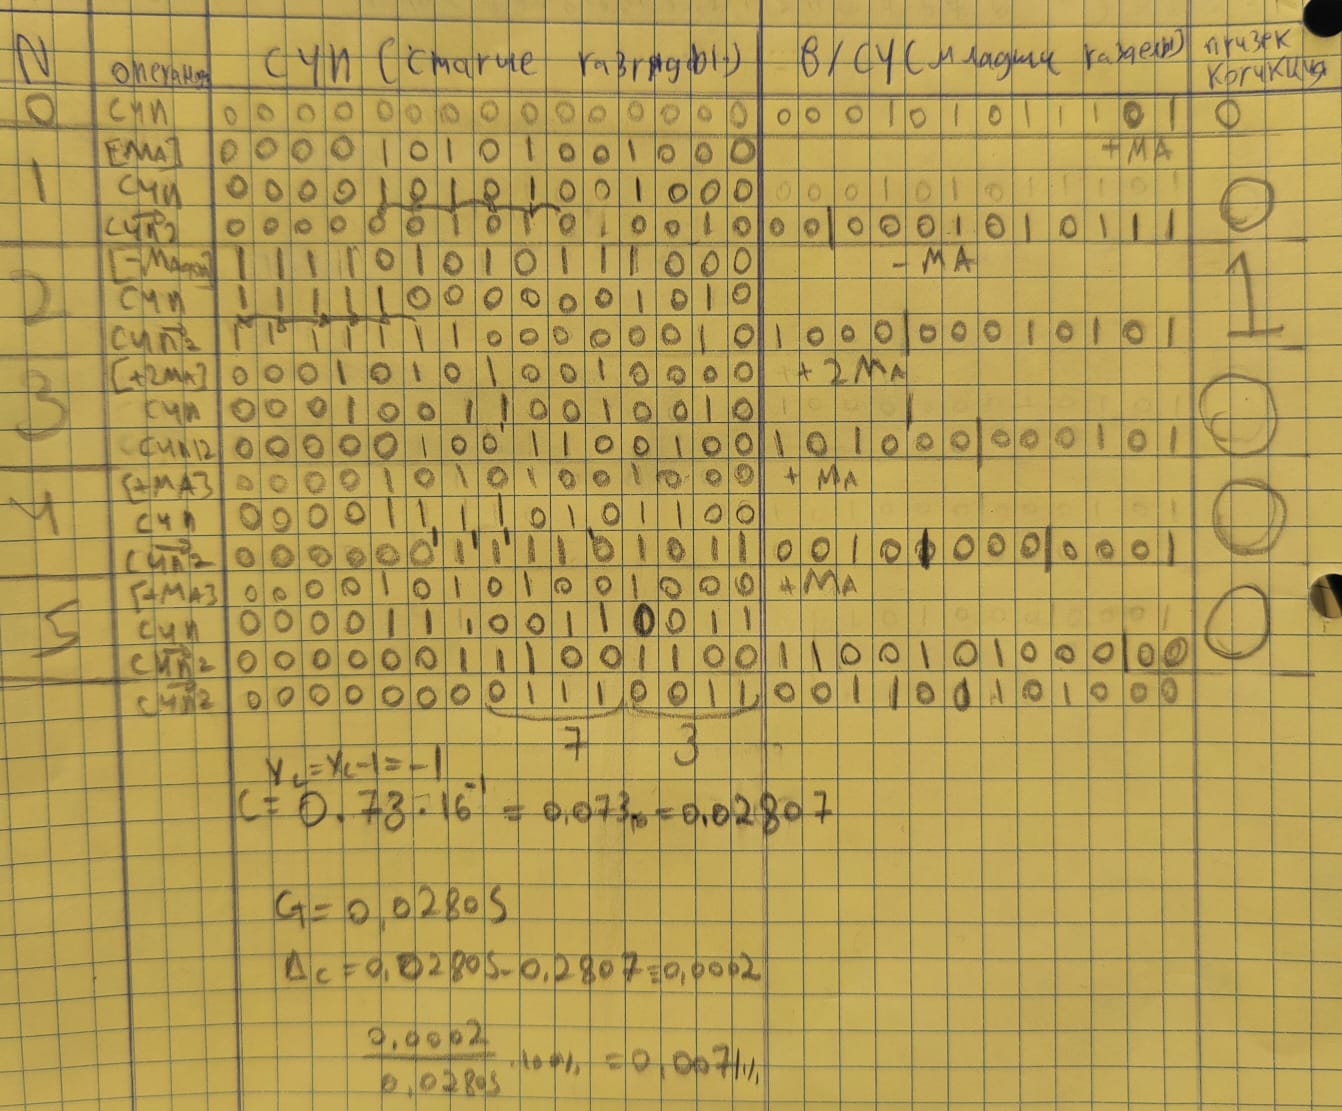 N операнд СЧП (старшие разряды) В/СЧ (младшие разряды) призек коррекция
0 СЧП 0 0 0 0 0 0 0 0 0 0 0 0 0 0 0 0 0 0 1 0 1 0 1 1 1 0 1 0
[MA] 0 0 0 0 1 0 1 0 1 0 0 1 0 0 0 +MA
1 СЧП 0 0 0 0 1 0 1 0 1 0 0 1 0 0 0 0 0 0 1 0 1 0 1 1 1 0 1 0
СЧП→2 0 0 0 0 0 0 1 0 1 0 1 0 0 1 0 0 0|0 0 0 1 0 1 0 1 1 1
[-MAдоп] 1 1 1 1 0 1 0 1 0 1 1 1 0 0 0 -MA
2 СЧП 1 1 1 1 1 0 0 0 0 0 0 1 0 1 0 1
СЧП→2 1 1 1 1 1 1 1 0 0 0 0 0 0 1 0 1 0 0 0|0 0 0 1 0 1 0 1
[+2MA] 0 0 0 1 0 1 0 1 0 0 1 0 0 0 0 +2MA
3 СЧП 0 0 0 1 0 0 1 1 0 0 1 0 0 1 0 0
СЧП→2 0 0 0 0 0 1 0 0 1 1 0 0 1 0 0 1 0 1 0 0 0|0 0 0 1 0 1
[+MA] 0 0 0 0 1 0 1 0 1 0 0 1 0 0 0 +MA
4 СЧП 0 0 0 0 1 1 1 1 0 1 0 1 1 0 0 0
СЧП→2 0 0 0 0 0 0 1 1 1 1 0 1 0 1 1 0 0 1 0 1 0 0 0|0 0 0 1
[+MA] 0 0 0 0 1 0 1 0 1 0 0 1 0 0 0 +MA
5 СЧП 0 0 0 0 1 1 1 0 0 1 1 0 0 1 1 0
СЧП→2 0 0 0 0 0 0 1 1 1 0 0 1 1 0 0 1 1 0 0 1 0 1 0 0 0|0 0
СЧП→2 0 0 0 0 0 0 0 0 1 1 1 0 0 1 1 0 0 1 1 0 0 1 0 1 0 0 0
7 3
Xc=Xc-1=-1
C= 0.73·16⁻¹ = 0,073₁₆=0,02807
G= 0,02805
Δc=0,02805-0,2807=0,0002
0,0002
0,02805 ·100% = 0,0071%